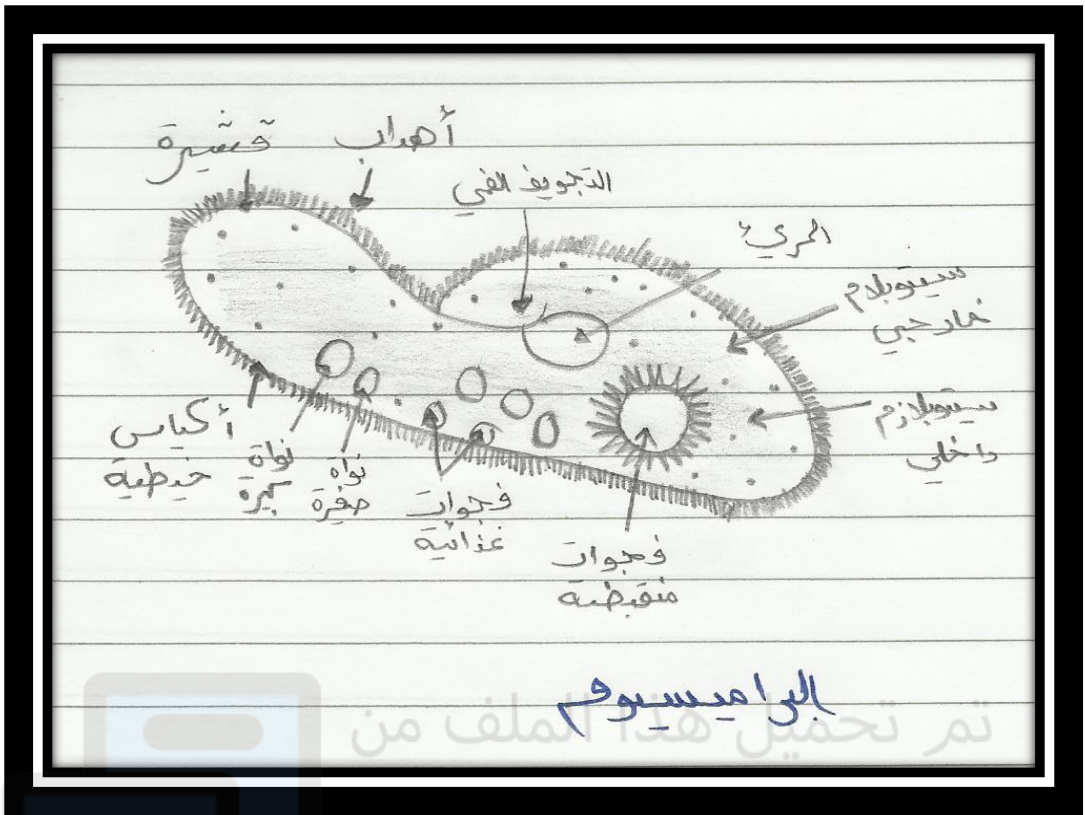 قشيرة
أهداب
التجويف الفمي
المريء
سيتوبلازم
خارجي
سيتوبلازم
داخلي
أكياس
خيطية
نواة
كبيرة
نواة
صغيرة
فجوات
غذائية
فجوات
منقبضة
البراميسيوم
تم تحميل هذا الملف من